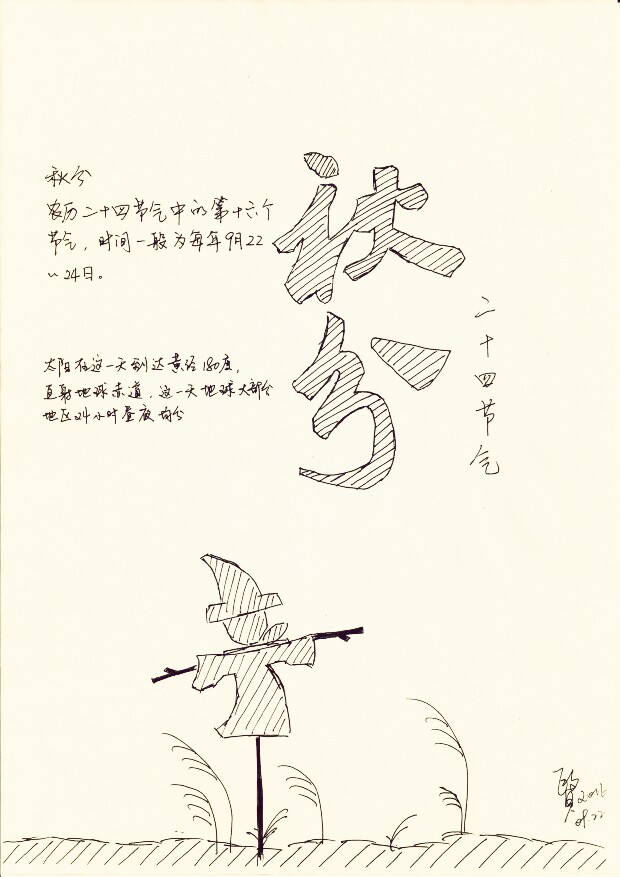 秋分
农历二十四节气中的第十六个
节气，时间一般为每年9月22
~24日。
秋分
二十四节气
太阳在这一天到达黄经180度，
直射地球赤道，这一天地球大部分
地区24小时昼夜均分
2016
09.22